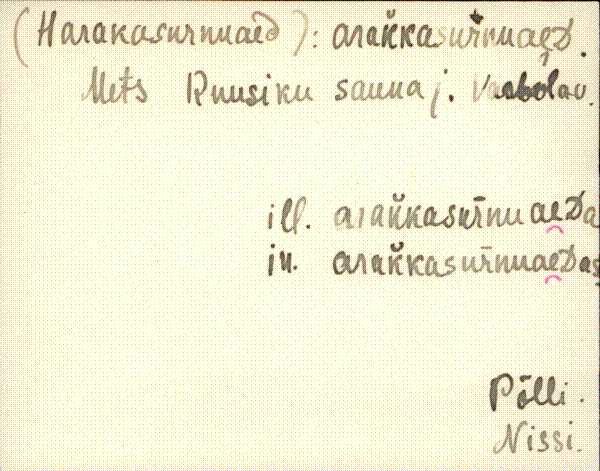 (Harakasurnuaed): arak̆kasur̄nuaeD.
Mets Ruusiku sauna j. Vardolau.
ill. arak̆kasur̄nuaeDa
in. arak̆kasur̄nuaeDas
Põlli.
Nissi.